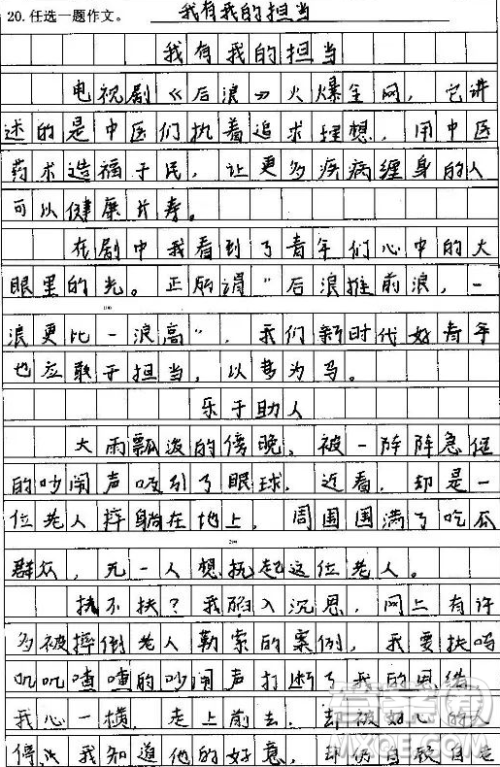 20. 任选一题作文。 我有我的担当
我有我的担当
电视剧《后浪》火爆全网，它讲
述的是中医们执着追求理想，用中医
药术造福于民，让更多疾病缠身的人
可以健康片寿。
在剧中我看到了青年们心中的大
眼里的光。正所谓"后浪推前浪，一
浪更比一浪高"，我们新时代好青年
也应敢于担当，以梦为马。
乐于助人
大雨瓢泼的傍晚，被一阵阵急促
的吵闹声吸引了眼球，近看，却是一
位老人摔躺在地上，周围围满了吃瓜
群众，无一人想扶起这位老人。
扶不扶？我陷入沉思，网上有许
多被摔倒老人勒索的案例，我要扶吗
叽叽喳喳的吵闹声打断了我的思绪
我心一横，走上前去，却被好心的人
我知道他的好意，却仍自顾自